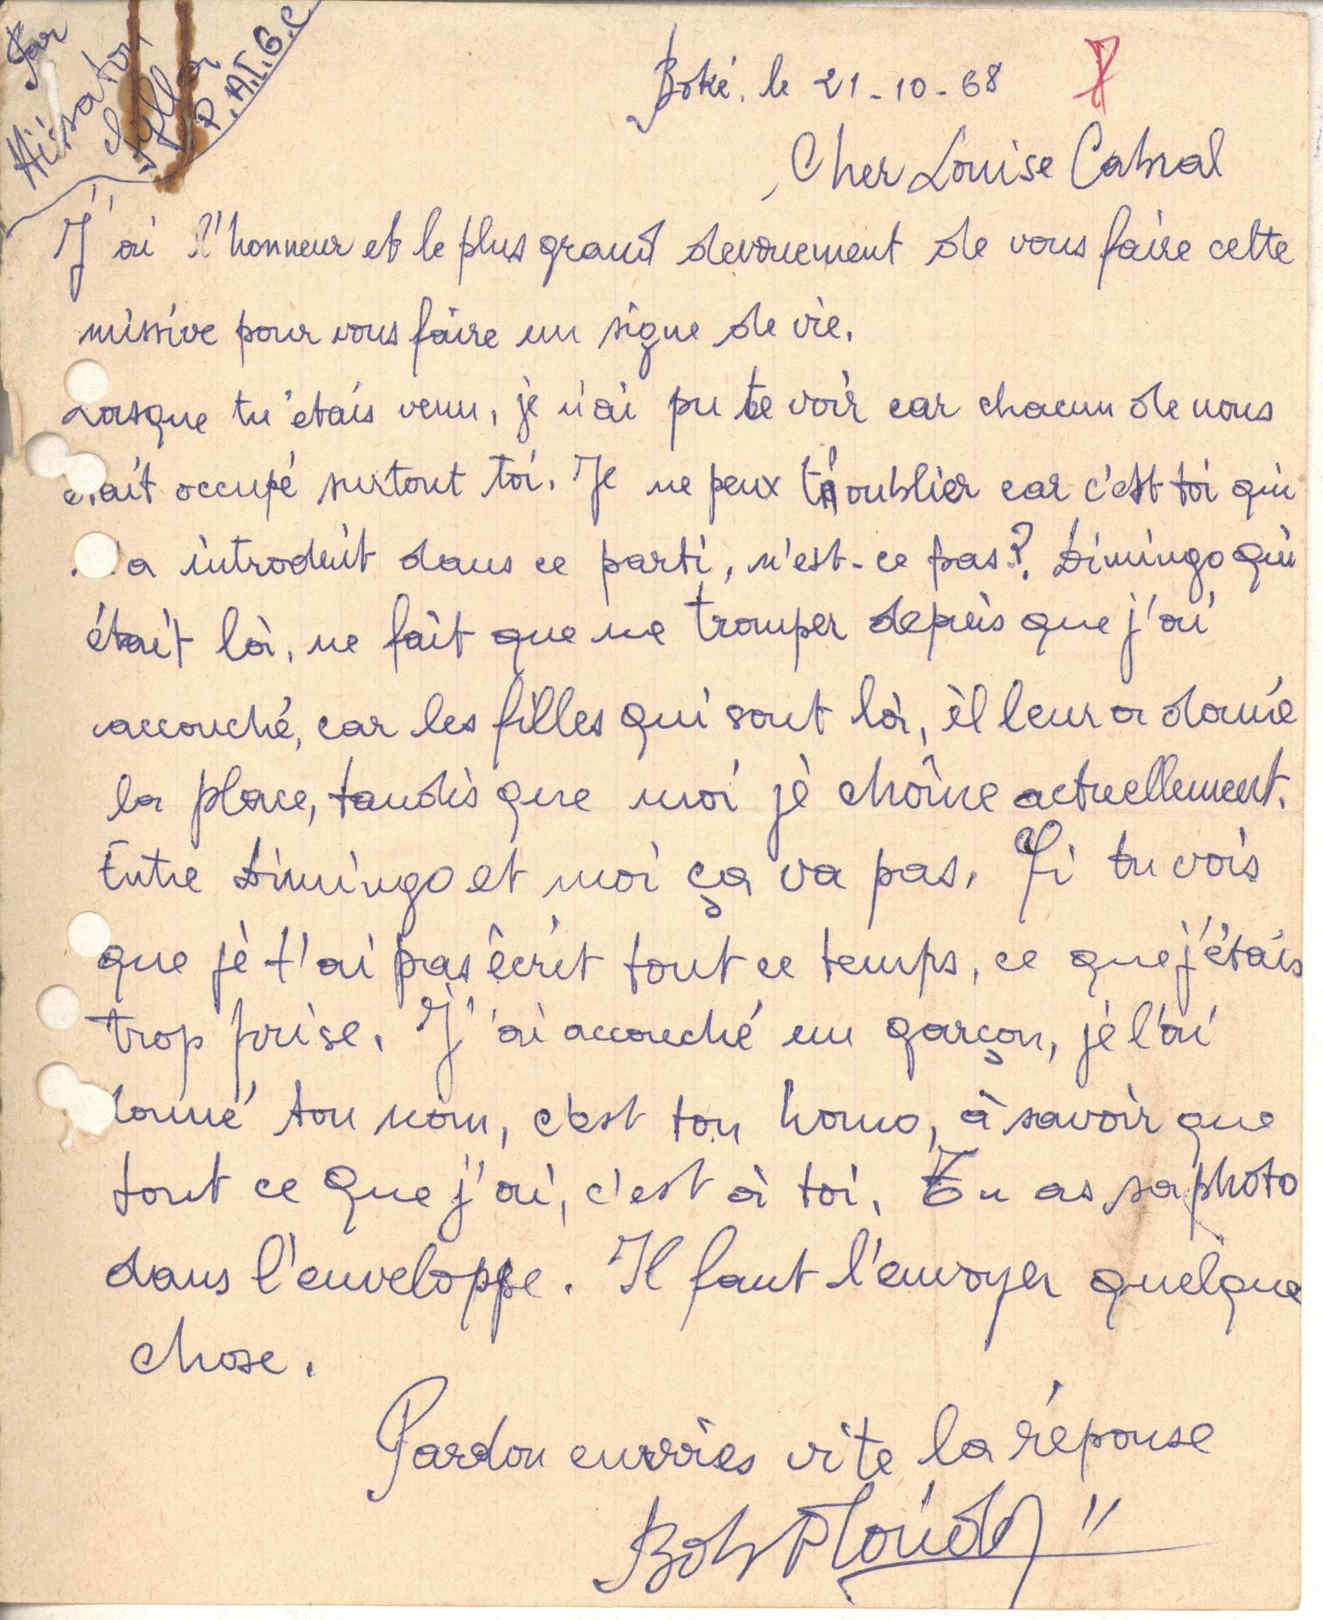 Par
Aïssatou
Sylla
P.A.I.G.C.
Boké, le 21-10-68
Cher Louise Cabral
J'ai l'honneur et le plus grand devouement de vous faire cette
missive pour vous faire un signe de vie.
Lorsque tu étais venu, je n'ai pu te voir car chacun de nous
était occupé surtout toi. Je ne peux t'oublier car c'est toi qui
a introduit dans ce parti, n'est-ce pas?. Dimingo qui
était là, ne fait que me tromper depuis que j'ai
accouché, car les filles qui sont là, il leur a donné
la place, tandis que moi je chôme actuellement.
Entre Dimingo et moi ça va pas. Si tu vois
que je t'ai pas écrit tout ce temps, ce que j'étais
trop prise. J'ai accouché un garçon, je l'ai
donné ton nom, c'est ton homo, à savoir que
tout ce que j'ai, c'est à toi. Tu as sa photo
dans l'enveloppe. Il faut l'envoyer quelque
chose.
Pardon vite la réponse